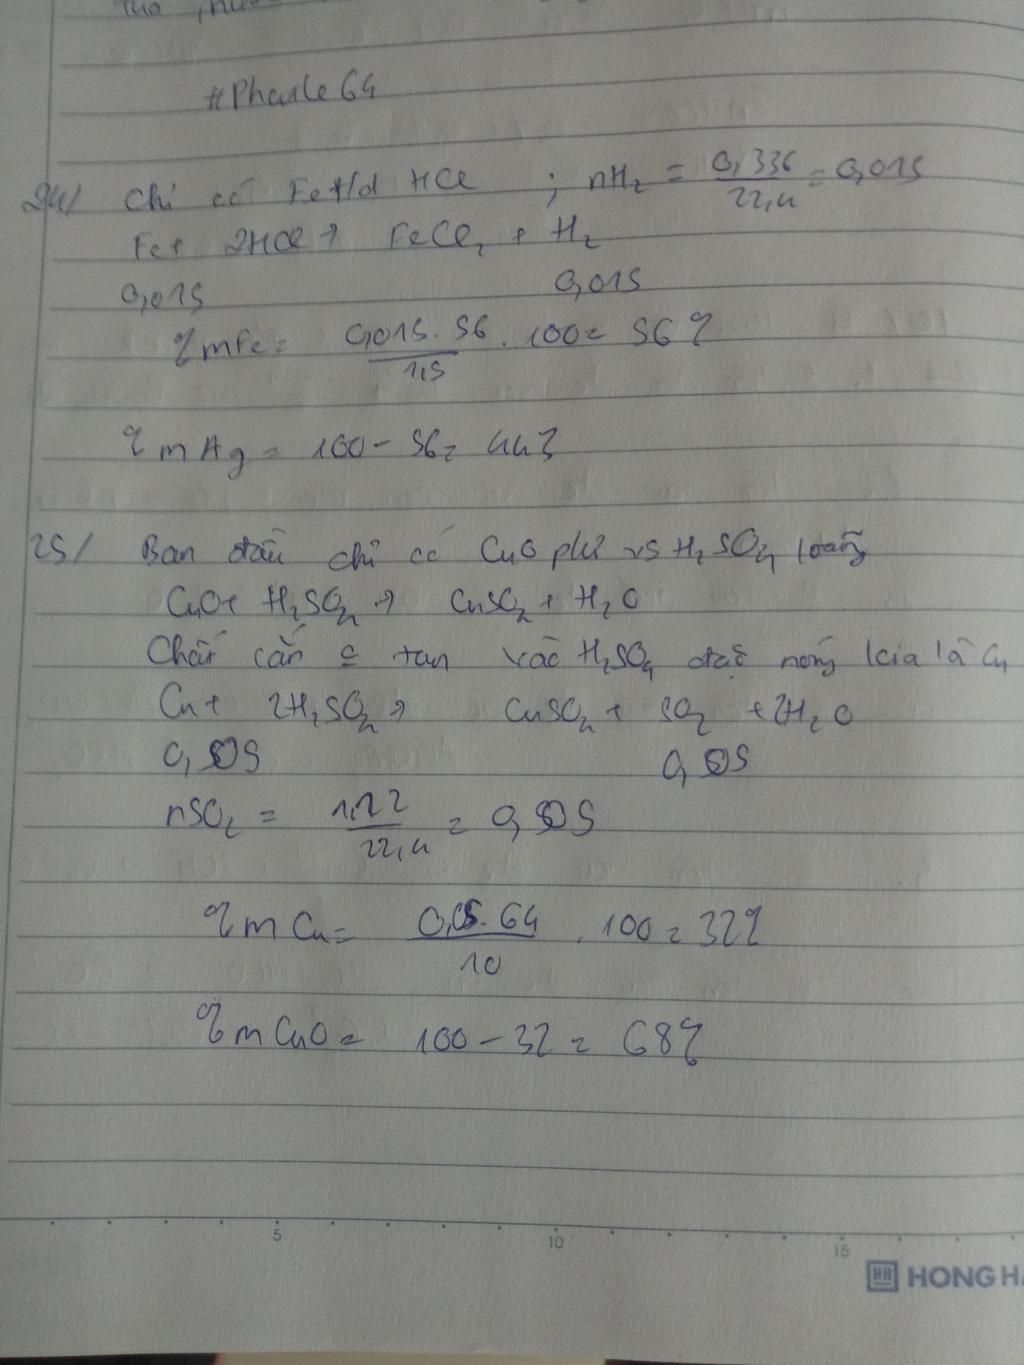 #Pharle64
24/ Chỉ có Fe t/d HCl ; nH₂ = 0,336/22,4 = 0,015
Fe + 2HCl → FeCl₂ + H₂
0,015 0,015
% mFe = 0,015.56/1,5 . 100 = 56%
% m Ag = 100 - 56 = 44%
25/ Ban đầu chỉ có CuO pứ vs H₂SO₄ loãng
CuO + H₂SO₄ → CuSO₄ + H₂O
Chất rắn tan vào H₂SO₄ đặc nóng kia là Cu
Cu + 2H₂SO₄ → CuSO₄ + SO₂ + 2H₂O
0,05 0,05
nSO₂ = 1,12/22,4 = 0,05
% m Cu = 0,05.64/10 . 100 = 32%
% m CuO = 100 - 32 = 68%
5 10 15
HH HONG HA